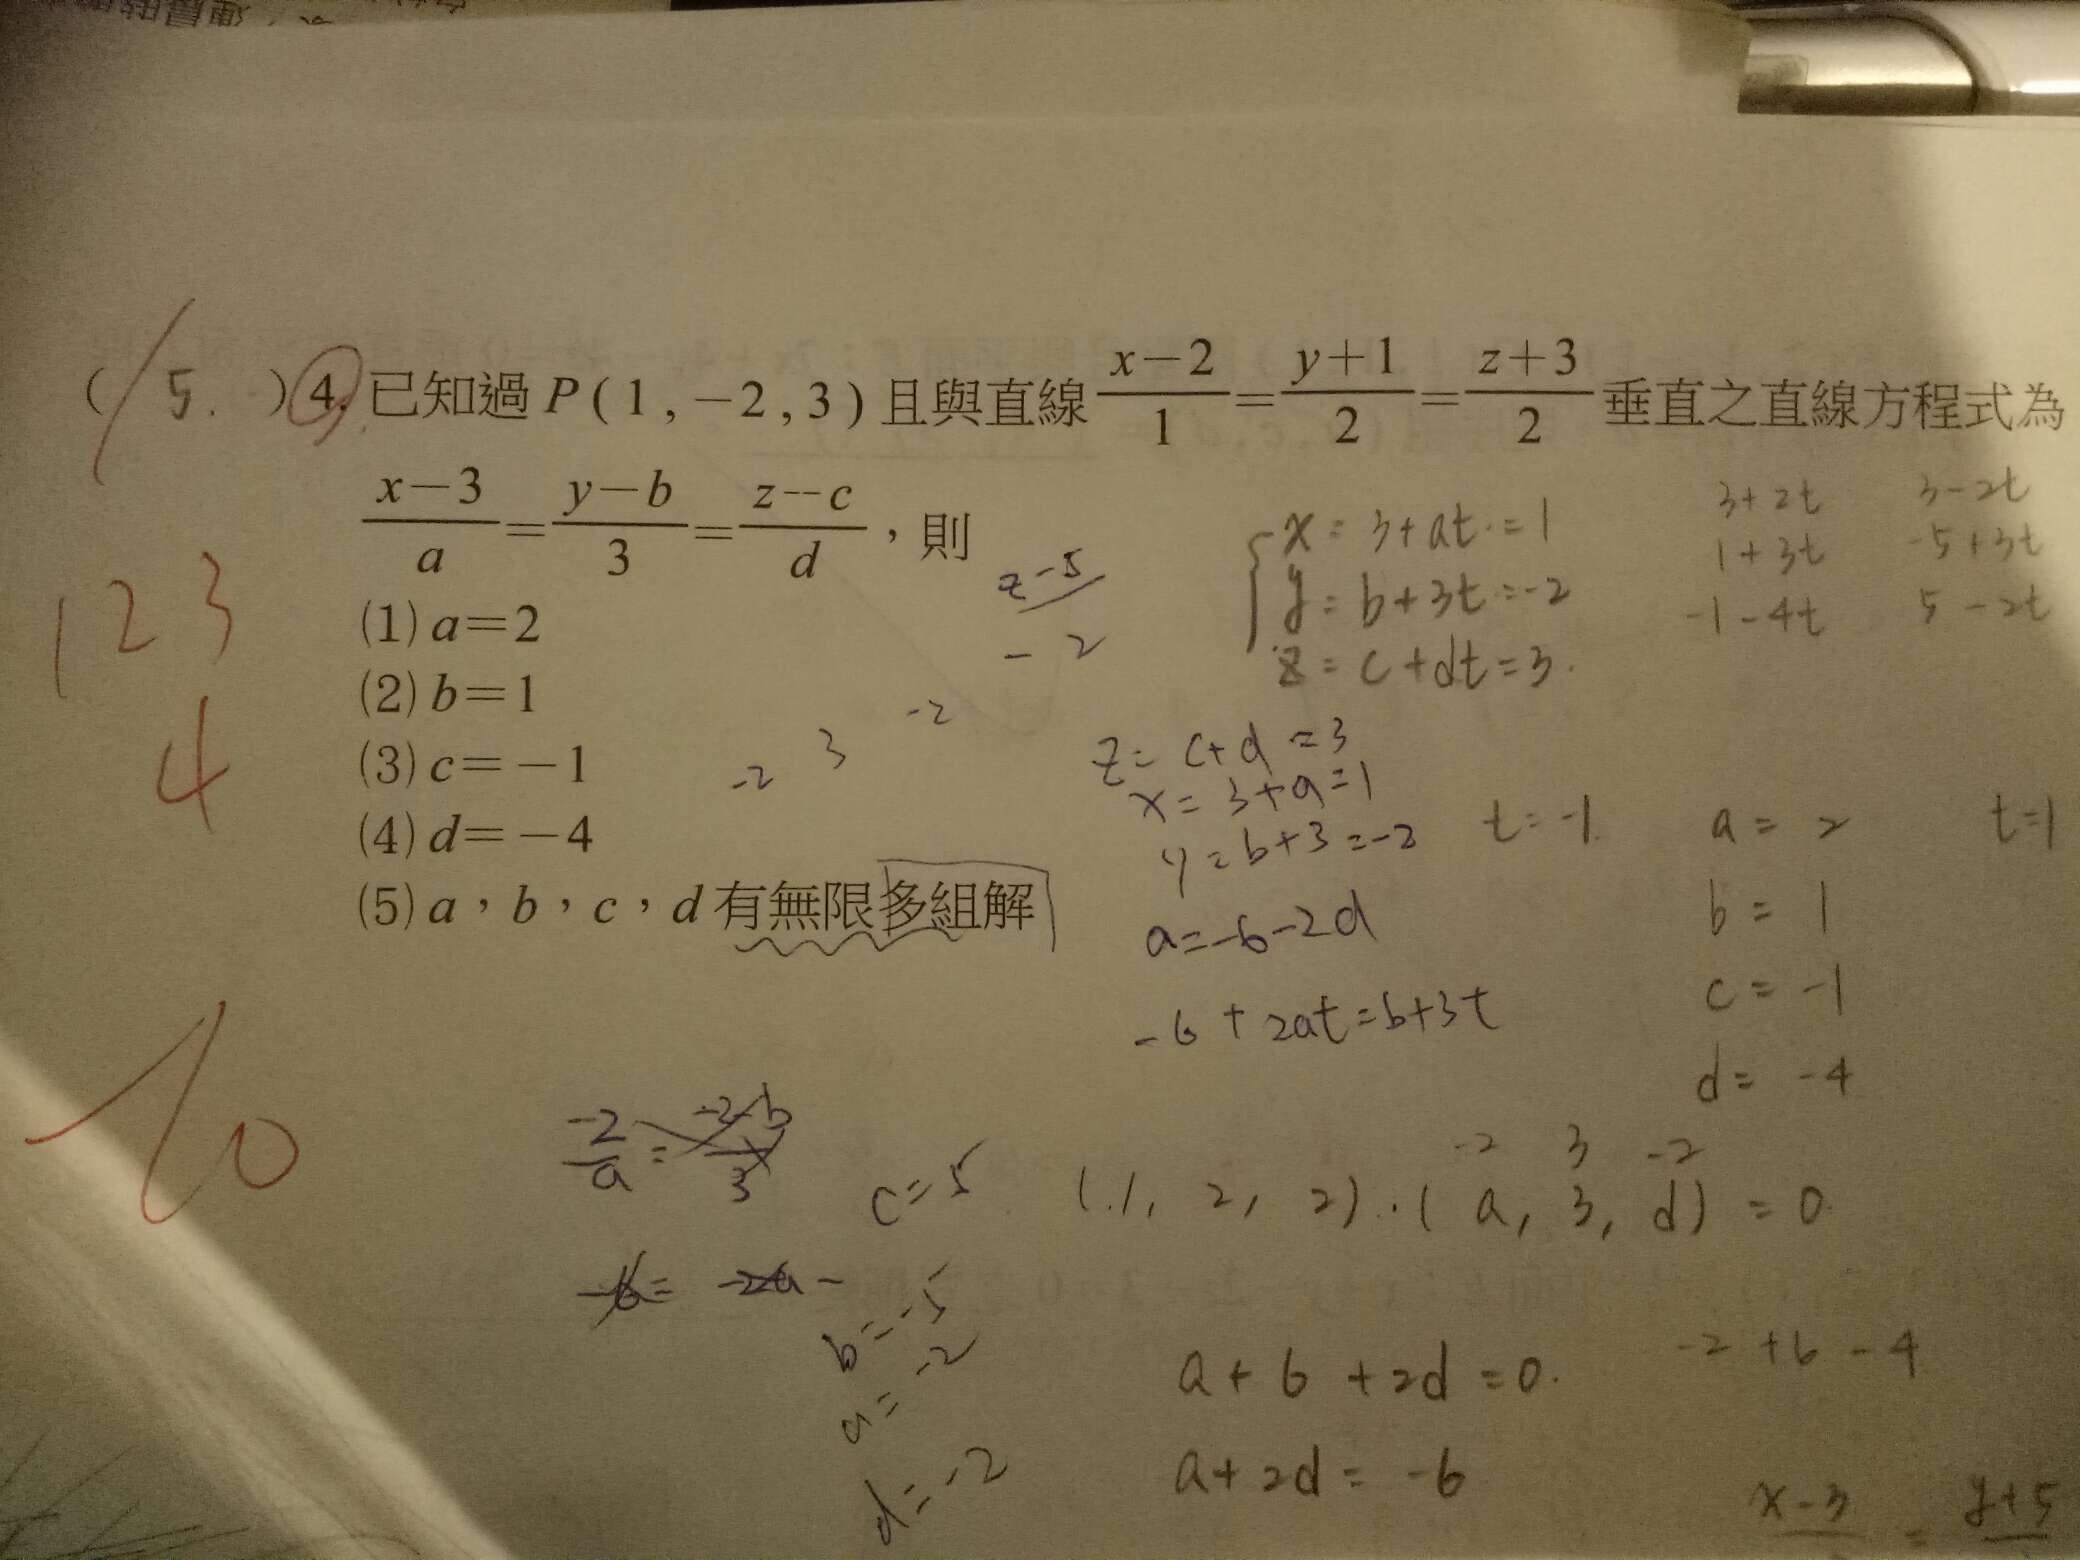 ( 5. ) 4. 已知過 P(1,-2,3) 且與直線 (x-2)/1=(y+1)/2=(z+3)/2 垂直之直線方程式為
(x-3)/a=(y-b)/3=(z--c)/d,則
(1) a=2
(2) b=1
(3) c=-1
(4) d=-4
(5) a,b,c,d 有無限多組解
1 2 3
4
(z-5)/-2
-2 3 -2
x = 3+at = 1
y = b+3t = -2
z = c+dt = 3.
3+2t
1+3t
-1-4t
3-2t
-5+3t
5-2t
z = c+d = 3
x = 3+a = 1
y = b+3 = -2
a=-6-2d
-6+2at=b+3t
t=-1.
a= 2
b= 1
c= -1
d= -4
t=1
-2/a = (-2-b)/3
c=5
b=-5
a=-2
d=-2
-2 3 -2
(1, 2, 2).( a, 3, d) = 0.
a+6+2d=0.
-2+6-4
a+2d = -6
x-3 = y+5